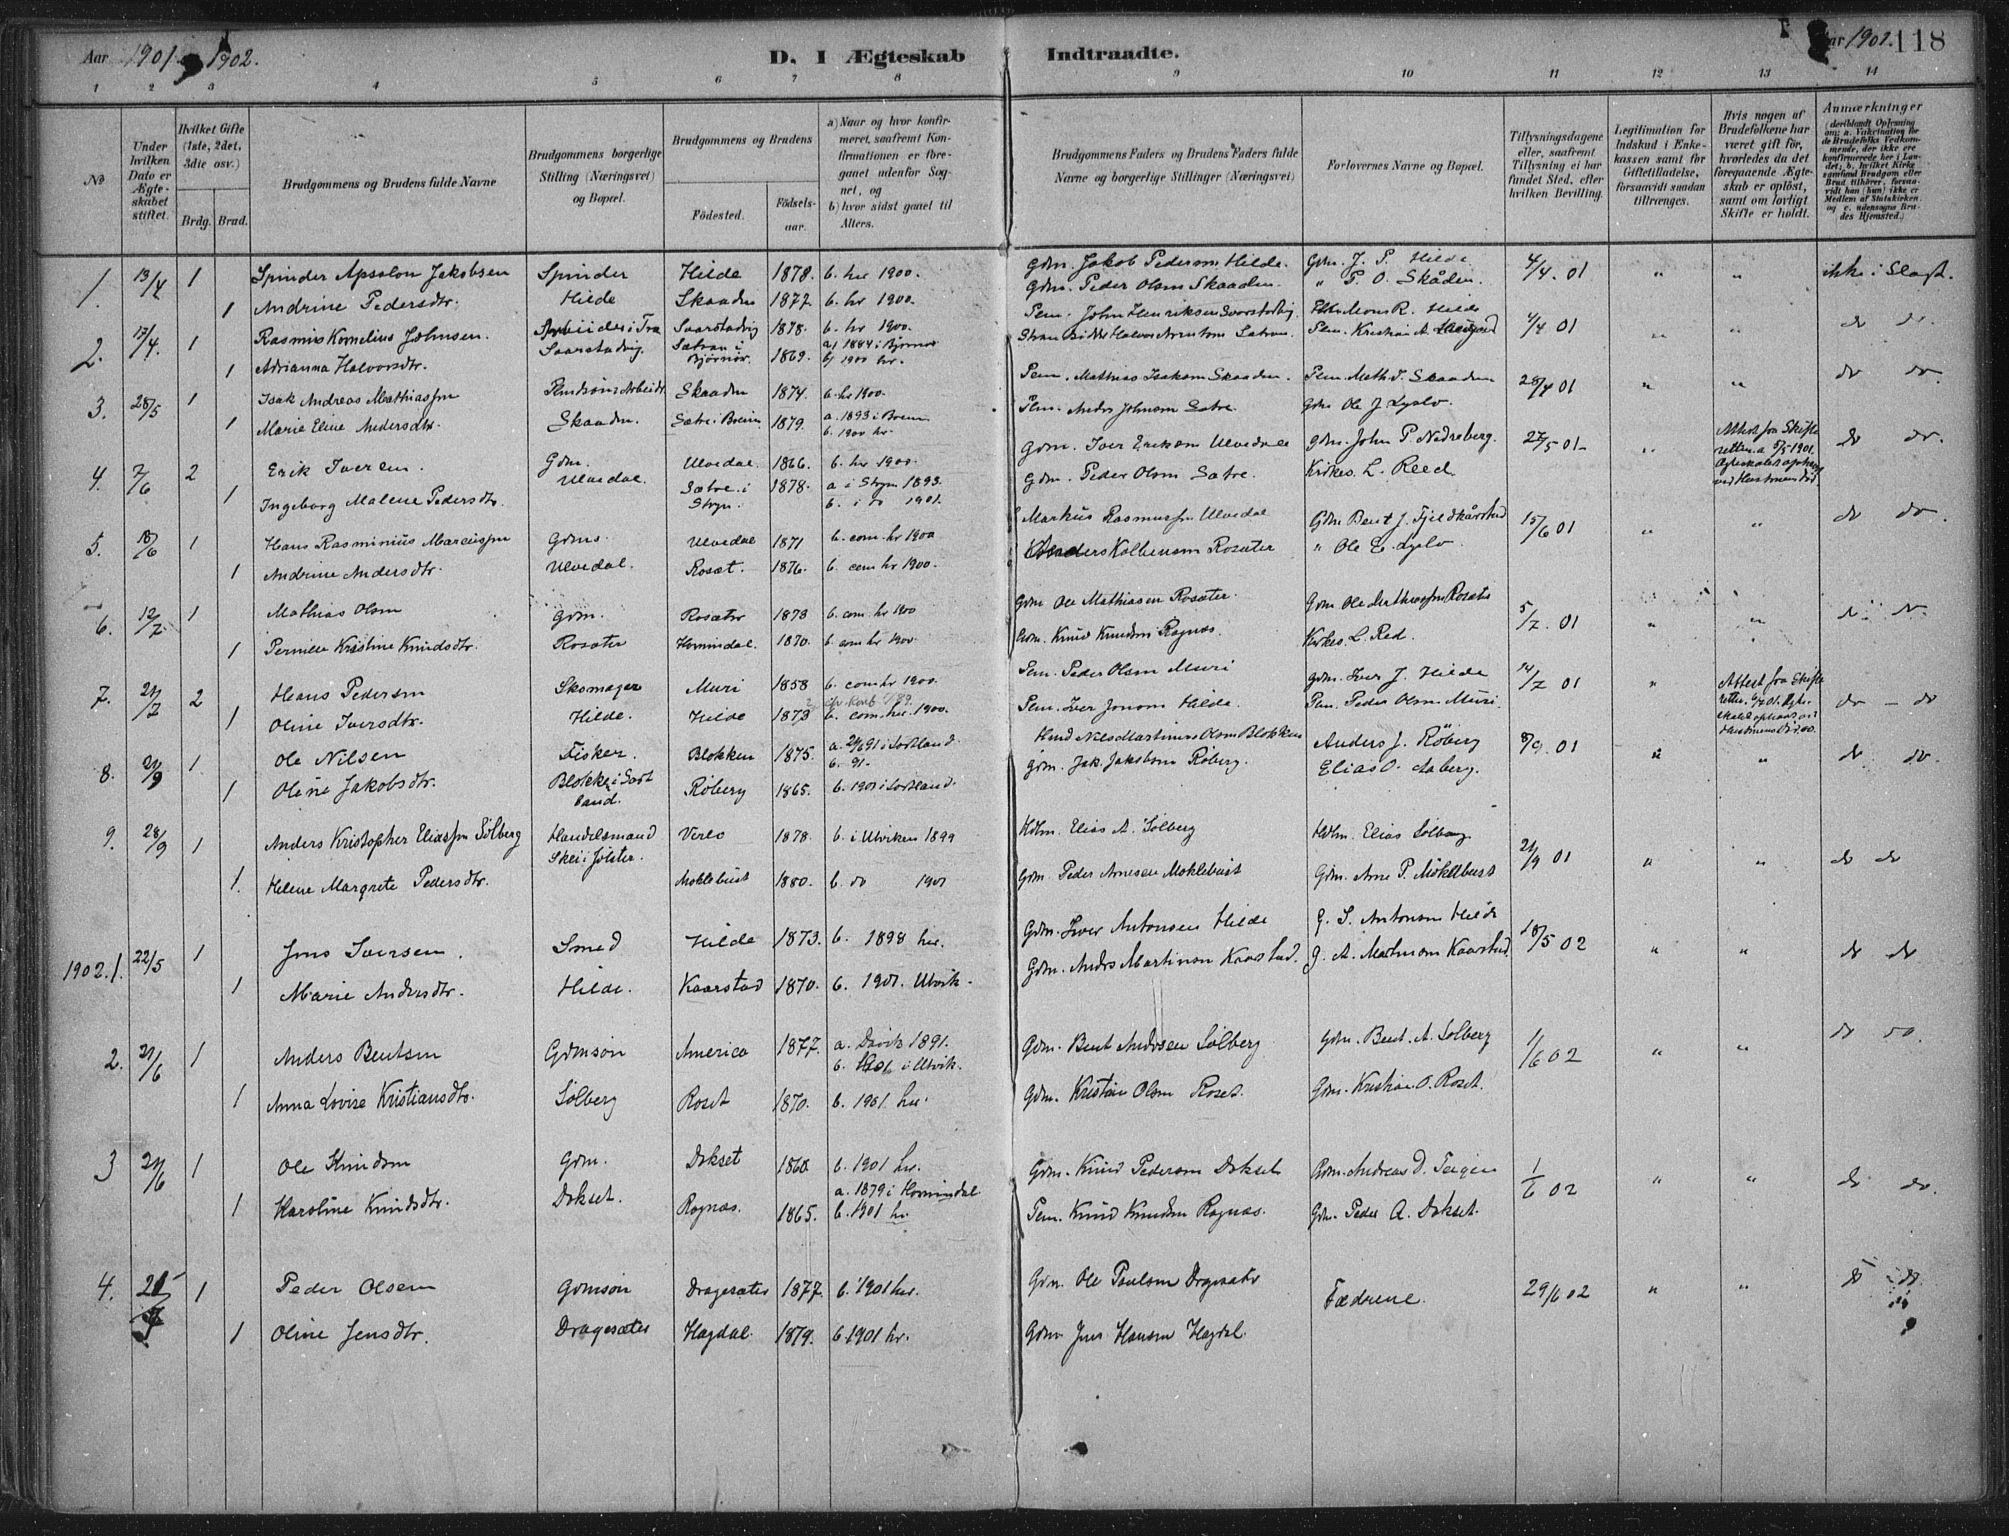 Aar 1901. 1902.
D. I Ægteskab Indtraadte.
Aar 1902. 118
1 2 3 4 5 6 7 8 9 10 11 12 13 14
No
Under hvilken Dato er Ægteskabet stiftet.
Hvilket Gifte (1ste, 2det, 3die osv.)
Brdg. Brud.
Brudgommens og Brudens fulde Navne
Brudgommens borgerlige Stilling (Næringsvei) og Bopæl.
Brudgommens og Brudens
Fødested. Fødselsaar.
a) Naar og hvor konfirmeret, saafremt Konfirmationen er foregaaet udenfor Sognet, og
b) hvor sidst gaaet til Alters.
Brudgommens Faders og Brudens Faders fulde Navne og borgerlige Stillinger (Næringsvei)
Forlovernes Navne og Bopæl.
Tillysningsdagene eller, saafremt Tillysning ei har fundet Sted, efter hvilken Bevilling.
Legitimation for Indskud i Enkekassen samt for Giftetilladelse, forsaavidt saadan tiltrænges.
Hvis nogen af Brudefolkene har været gift før, hvorledes da det foregaaende Ægteskab er opløst, samt om lovligt Skifte er holdt.
Anmærkninger (deriblandt Oplysning om: a. Vaksination for de Brudefolks Vedkommende, der ikke ere konfirmerede her i Landet; b. hvilket Kirkesamfund Brudgom eller Brud tilhører, forsaavidt han (hun) ikke er Medlem af Statskirken, og c. udensogns Brudes Hjemsted.)
1. 13/4 1 Spinder Apsolon Jakobsen Spinder Hilde 1878. b. her 1900. Gdm. Jakob Pedersen Hilde. Gdm. J. P. Hilde 4/4. 01 " " ikke i Slægt.
1 Andrine Pedersdtr. Hilde Skaaden 1877. b. hr 1900. Gdm. Peder Olsen Skaaden. " P. O. Skåden.
2. 17/4. 1 Rasmus Kornelius Johnsen. Arbeider i Svarstadvig 1878. b. hr 1900. Pem. John Henriksen Svarstadvig 4/4 01 " " do do.
1 Adrianna Halvorsdtr. Svarstadvig. Sætran i Bjørnør. 1869. a/ 1884 i Bjørnør b/ 1900 hr. Pem. Kristian A.
3. 28/5 1 Isak Andreas Mathiassen Skaaden 1874. b. hr 1900. Pem. Mathias Isaksen Skaaden. Pem. Math. I. Skaaden 28/4 01 " " do do.
1 Marie Eline Andersdtr. Skaaden. Sætre i 1879. a. 1893 i b. 1900 hr. Pem. Anders Johnsen Sætre. Gdm Ole J. Lyslo.
4. 7/6 2 Erik Iversen. Gdm. Ulvedal. 1866. b. her 1900. Gdm. Iver Eriksen Ulvedal Gdm. John P. Nedreberg. 27/5 01 " Attest fra Skifteretten a 5/5 1901. Ægteskabet ophævet ved Hustruens Død do do.
1 Ingeborg Malene Pedersdtr. Ulvedal. Sætre i Stryn. 1878. a i Stryn 1893. b. i do 1901. Gdm. Peder Olsen Sætre. Kirkes. L. Reed.
5. 18/6 1 Hans Rasminius Marcussen Gdms. Ulvedal 1871 b. com. hr 1900 Markus Rasmussen Ulvedal Gdm Bent J. Fjeldkårstad 15/6 01 " " do do.
1 Andrine Andersdtr. Ulvedal. Rosæt. 1876. b. com hr 1900. Anders Kolbensen Rosæter " Ole E. Lyslo.
6. 12/7. 1 Mathias Olsen Gdm. Rosæter 1873 b. com. hr 1900 Gdm Ole Mathiasen Rosæter. Gdm. Ole Mathiassen Rosæter 5/7. 01 " " do do.
1 Pernille Kristine Knudsdtr. Rosæter Hornindal. 1870. b. com hr 1900. Gdm. Knud Knudsen Rognæs. Kirkes. L. Red.
7. 21/7 2 Hans Pedersen Skomager Muri 1858 b. com hr 1900. Pem. Peder Olsen Muri Gdm. Iver J. Hilde 14/7 01 " Attest fra Skifteretten do - do
1 Oline Iversdtr. Hilde. Hilde 1873 b. com. her. 1900. Pem. Iver Jonsen Hilde. Pem. Peder Olsen Muri.
8. 21/9 1. Ole Nilsen Fisker. Blokken 1875. a. 21/6 91 i Sortland. b. 91. Nils Martinus Olsen Blokken Anders J. Røberg 8/9 01 " " do do.
1 Oline Jakobsdtr. Blokken i Sortland. Røberg 1865. b. 1901 i Sortland. Gdm. Jak. Jakobsen Røberg. Elias O. Aaberg.
9. 28/9 1 Anders Kristopher Eliassen Sølberg Handelsmand Verlo 1878. b. i Utviken 1899 Hdlm. Elias A. Sølberg Hdlm. Elias Sølberg 21/9 01 " " do do
1. Helene Margrete Pedersdtr. Skei i Jølster. Moklebust 1880. b. do 1901 Gdm. Peder Arnesen Moklebust Gdm. Arne P. Møklebust
1902. 1. 22/5 1 Jens Iversen. Smed Hilde 1873. b. 1898 her. Gdm. Iver Antonsen Hilde G. I. Antonsen Hilde 18/5 02 " " do do
1 Marie Andersdtr. Hilde. Kaarstad 1870. b. 1901. Utvik. Gdm. Anders Martinsen Kaarstad. G. A. Martinsen Kaarstad.
2. 21/6 1 Anders Bentsen Gdmsøn America 1877. a. Davik 1891. b. 1901 i Utvik. Gdm. Bent Andersen Sølberg Gdm. Bent. A. Solberg 1/6 02 " " do do.
1 Anna Lovise Kristiansdtr. Sølberg Roset 1870. b. 1901 her. Gdm. Kristian Olsen Roset. Gdm. Kristian O. Roset.
3 21/6 1 Ole Knudsen Gdm. Dokset 1860. b. 1901 hr. Gdm. Knud Pedersen Dokset Gdm. Andreas D. Teigen 1/6 02 " " do do.
1 Karoline Knudsdtr. Dokset. Rognæs. 1865. a. 1879 i Hornindal. b. 1901 hr. Pem. Knud Knudsen Rognæs. Gdm. Peder A. Dokset.
4. 1 Peder Olsen Gdmsøn Dragesæter 1877. b. 1901 her. Gdm. Ole Paulsen Dragesæter Fædrene. 29/6 02 " " do do.
1 Oline Jensdtr. Dragesæter Hagdal. 1879. b 1901 hr. Gdm Jens Hansen Hagdal.